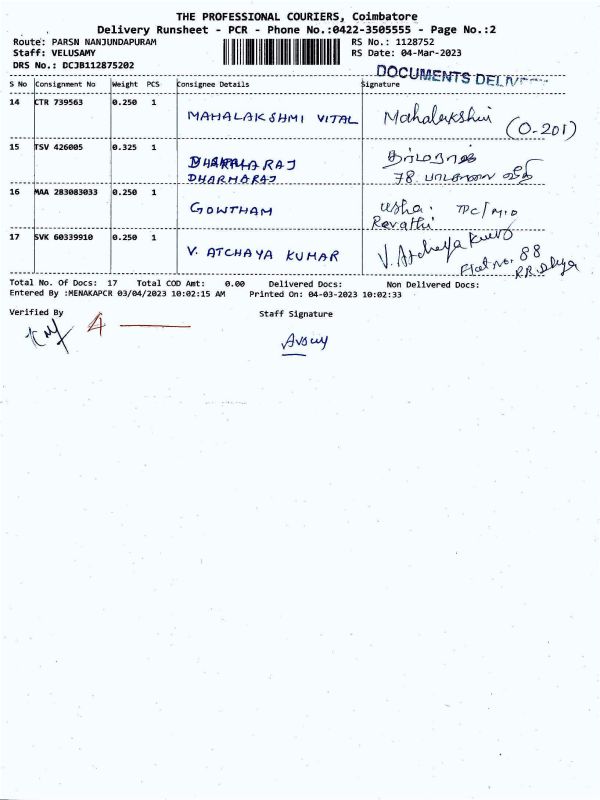 THE PROFESSIONAL COURIERS, Coimbatore
Delivery Runsheet - PCR - Phone No.:0422-3505555 - Page No.:2
Route: PARSN NANJUNDAPURAM RS No.: 1128752
Staff: VELUSAMY RS Date: 04-Mar-2023
DRS No.: DCJB112875202
DOCUMENTS
S No Consignment No Weight PCS Consignee Details Signature
14 CTR 739563 0.250 1
MAHALAKSHMI VITAL Mahalakshmi (O-201)
15 TSV 426005 0.325 1
DHARMARAJ தர்மராஜ்
DHARMARAJ 78.
16 MAA 283083033 0.250 1
GOWTHAM usha.
Revathi
17 SVK 60339910 0.250 1
V. ATCHAYA KUMAR V. Atchaya Kumar
Flat No. 88
Total No. Of Docs: 17 Total COD Amt: 0.00 Delivered Docs: Non Delivered Docs:
Entered By :MENAKAPCR 03/04/2023 10:02:15 AM Printed On: 04-03-2023 10:02:33
Verified By Staff Signature
4